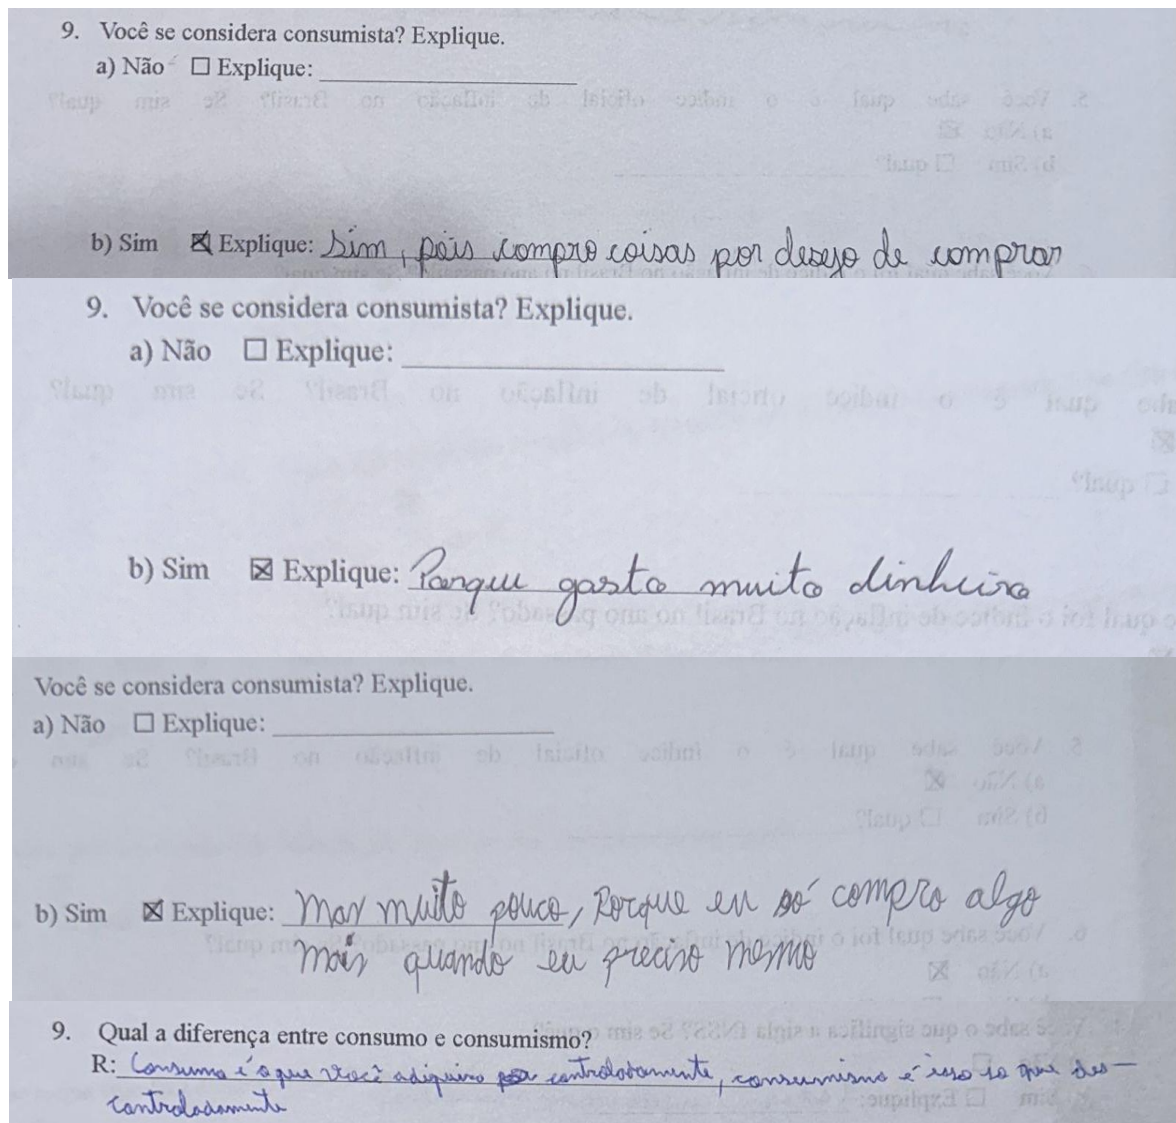 9. Você se considera consumista? Explique.
a) Não ☐ Explique: ____________
b) Sim ☒ Explique: Sim, pois compro coisas por desejo de comprar
9. Você se considera consumista? Explique.
a) Não ☐ Explique: ____________
b) Sim ☒ Explique: Porque gasto muito dinheiro
Você se considera consumista? Explique.
a) Não ☐ Explique: ____________
b) Sim ☒ Explique: Mas muito pouco, Porque eu só compro algo
mais quando eu preciso mesmo
9. Qual a diferença entre consumo e consumismo?
R: Consumo é o que você adiquire controladamente, consumismo é isso só que des-
controladamente